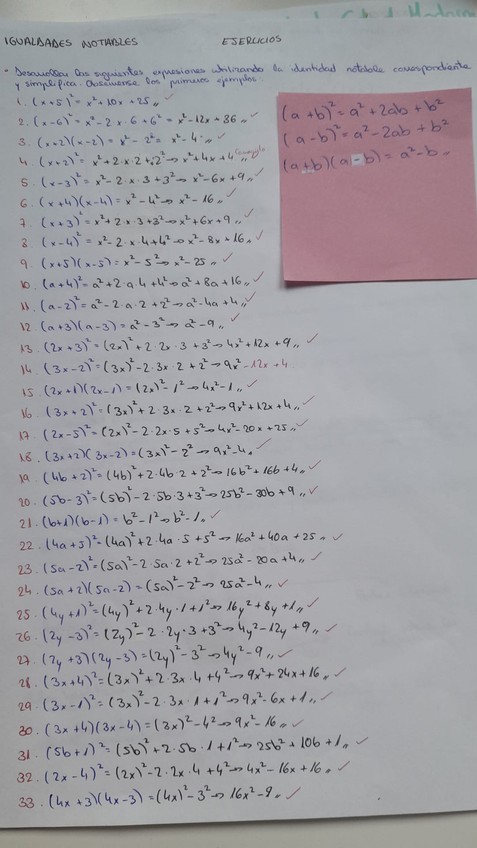 IGUALDADES NOTABLES EJERCICIOS
• Desarrollar las siguientes expresiones utilizando la identidad notable correspondiente
y simplifica. Obsérvense los primeros ejemplos.
1. (x+5)² = x² + 10x + 25 „ ✓
2. (x-6)² = x² - 2·x·6 + 6² = x² - 12x + 36 „ ✓
3. (x+2)(x-2) = x² - 2² = x² - 4 „ ✓
4. (x+2)² = x² + 2·x·2 + 2² → x² + 4x + 4
5. (x-3)² = x² - 2·x·3 + 3² → x² - 6x + 9 „ ✓
6. (x+4)(x-4) = x² - 4² → x² - 16 „ ✓
7. (x+3)² = x² + 2·x·3 + 3² → x² + 6x + 9 „ ✓
8. (x-4)² = x² - 2·x·4 + 4² → x² - 8x + 16 „ ✓
9. (x+5)(x-5) = x² - 5² → x² - 25 „ ✓
10. (a+4)² = a² + 2·a·4 + 4² → a² + 8a + 16 „ ✓
11. (a-2)² = a² - 2·a·2 + 2² → a² - 4a + 4 „ ✓
12. (a+3)(a-3) = a² - 3² → a² - 9 „ ✓
13. (2x+3)² = (2x)² + 2·2x·3 + 3² → 4x² + 12x + 9 „ ✓
14. (3x-2)² = (3x)² - 2·3x·2 + 2² → 9x² - 12x + 4
15. (2x+1)(2x-1) = (2x)² - 1² → 4x² - 1 „ ✓
16. (3x+2)² = (3x)² + 2·3x·2 + 2² → 9x² + 12x + 4 „ ✓
17. (2x-5)² = (2x)² - 2·2x·5 + 5² → 4x² - 20x + 25 „ ✓
18. (3x+2)(3x-2) = (3x)² - 2² → 9x² - 4 „ ✓
19. (4b+2)² = (4b)² + 2·4b·2 + 2² → 16b² + 16b + 4 „ ✓
20. (5b-3)² = (5b)² - 2·5b·3 + 3² → 25b² - 30b + 9 „ ✓
21. (b+1)(b-1) = b² - 1² → b² - 1 „ ✓
22. (4a+5)² = (4a)² + 2·4a·5 + 5² → 16a² + 40a + 25 „ ✓
23. (5a-2)² = (5a)² - 2·5a·2 + 2² → 25a² - 20a + 4 „ ✓
24. (5a+2)(5a-2) = (5a)² - 2² → 25a² - 4 „ ✓
25. (4y+1)² = (4y)² + 2·4y·1 + 1² → 16y² + 8y + 1 „ ✓
26. (2y-3)² = (2y)² - 2·2y·3 + 3² → 4y² - 12y + 9 „ ✓
27. (2y+3)(2y-3) = (2y)² - 3² → 4y² - 9 „ ✓
28. (3x+4)² = (3x)² + 2·3x·4 + 4² → 9x² + 24x + 16 „ ✓
29. (3x-1)² = (3x)² - 2·3x·1 + 1² → 9x² - 6x + 1 „ ✓
30. (3x+4)(3x-4) = (3x)² - 4² → 9x² - 16 „ ✓
31. (5b+1)² = (5b)² + 2·5b·1 + 1² → 25b² + 10b + 1 „ ✓
32. (2x-4)² = (2x)² - 2·2x·4 + 4² → 4x² - 16x + 16 „ ✓
33. (4x+3)(4x-3) = (4x)² - 3² → 16x² - 9 „ ✓
(a+b)² = a² + 2ab + b²
(a-b)² = a² - 2ab + b²
(a+b)(a-b) = a² - b